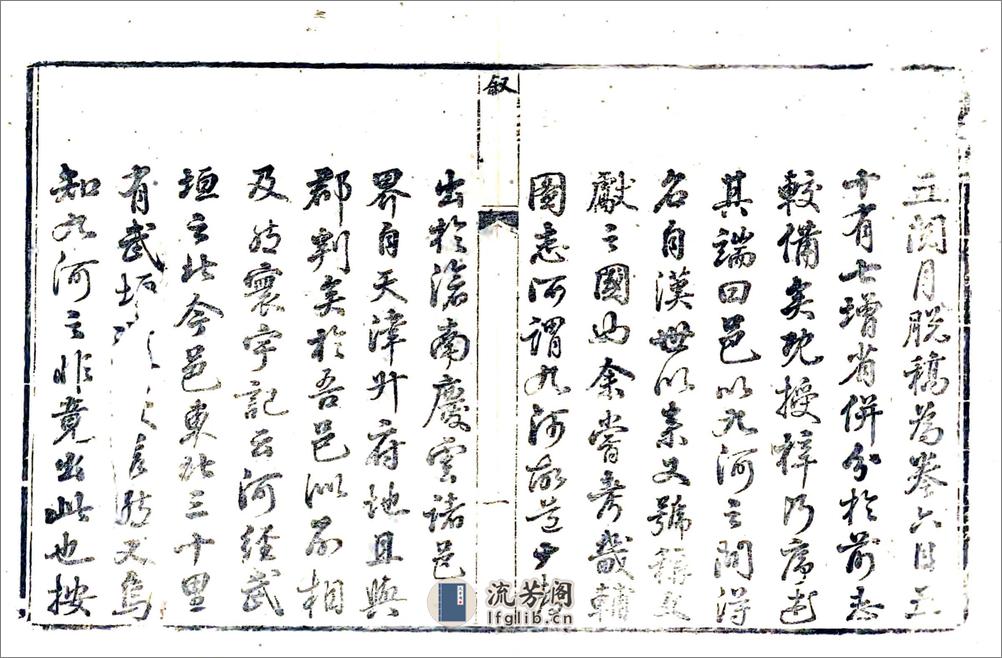 三閱月脫稿為卷六目五
十有七增省併分於前志
較備矣既授梓乃序
其端曰邑以九河之間得
名自漢世以來又號稱文
獻之國也余嘗考畿輔
圖志所謂九河故道多
叙
一
出於滄南慶雲諸邑
界自天津升府地且與
郡判矣於吾邑似不相
及然寰宇記云河經武
垣之北今邑東北三十里
有武垣然又烏
知九河之非竟出此也按
流芳閣
lfglib.cn